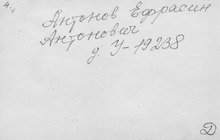 Антонов Ефрасин
Антонович
д. У-19238
Д